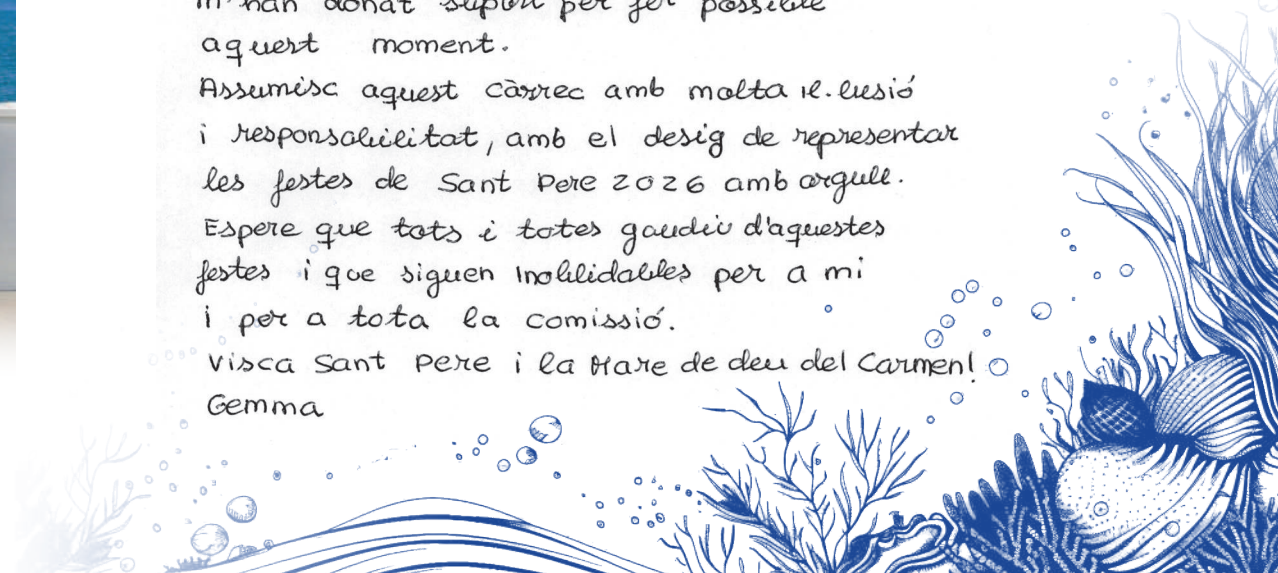 m'han donat suport per fer possible
aquest moment.
Assumisc aquest càrrec amb molta il.lusió
i responsabilitat, amb el desig de representar
les festes de Sant Pere 2026 amb orgull.
Espere que tots i totes gaudiu d'aquestes
festes i que siguen inoblidables per a mi
i per a tota la comissió.
Visca Sant Pere i la Mare de deu del Carmen!
Gemma